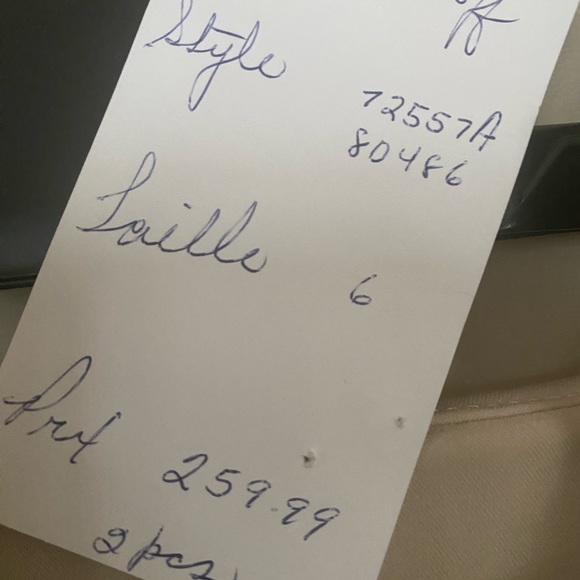 Style
72557A
80486
Taille 6
Prix 259.99
2 pcs